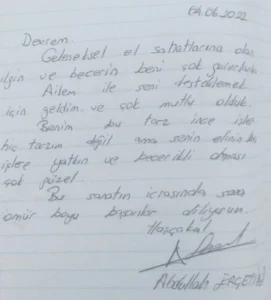 04.06.2022
Devrem.
Geleneksel el sanatlarına olan
ilgin ve becerin beni çok gururlandı
Ailem ile seni desteklemek
için geldim ve çok mutlu olduk.
Benim bu tarz ince işler
hiç tarzım değil ama senin elinin bu
işlere yatkın ve becerikli olması
çok güzel.
Bu sanatın icrasında sana
ömür boyu başarılar diliyorum.
Hoşçakal
Abdullah ERÇETİN